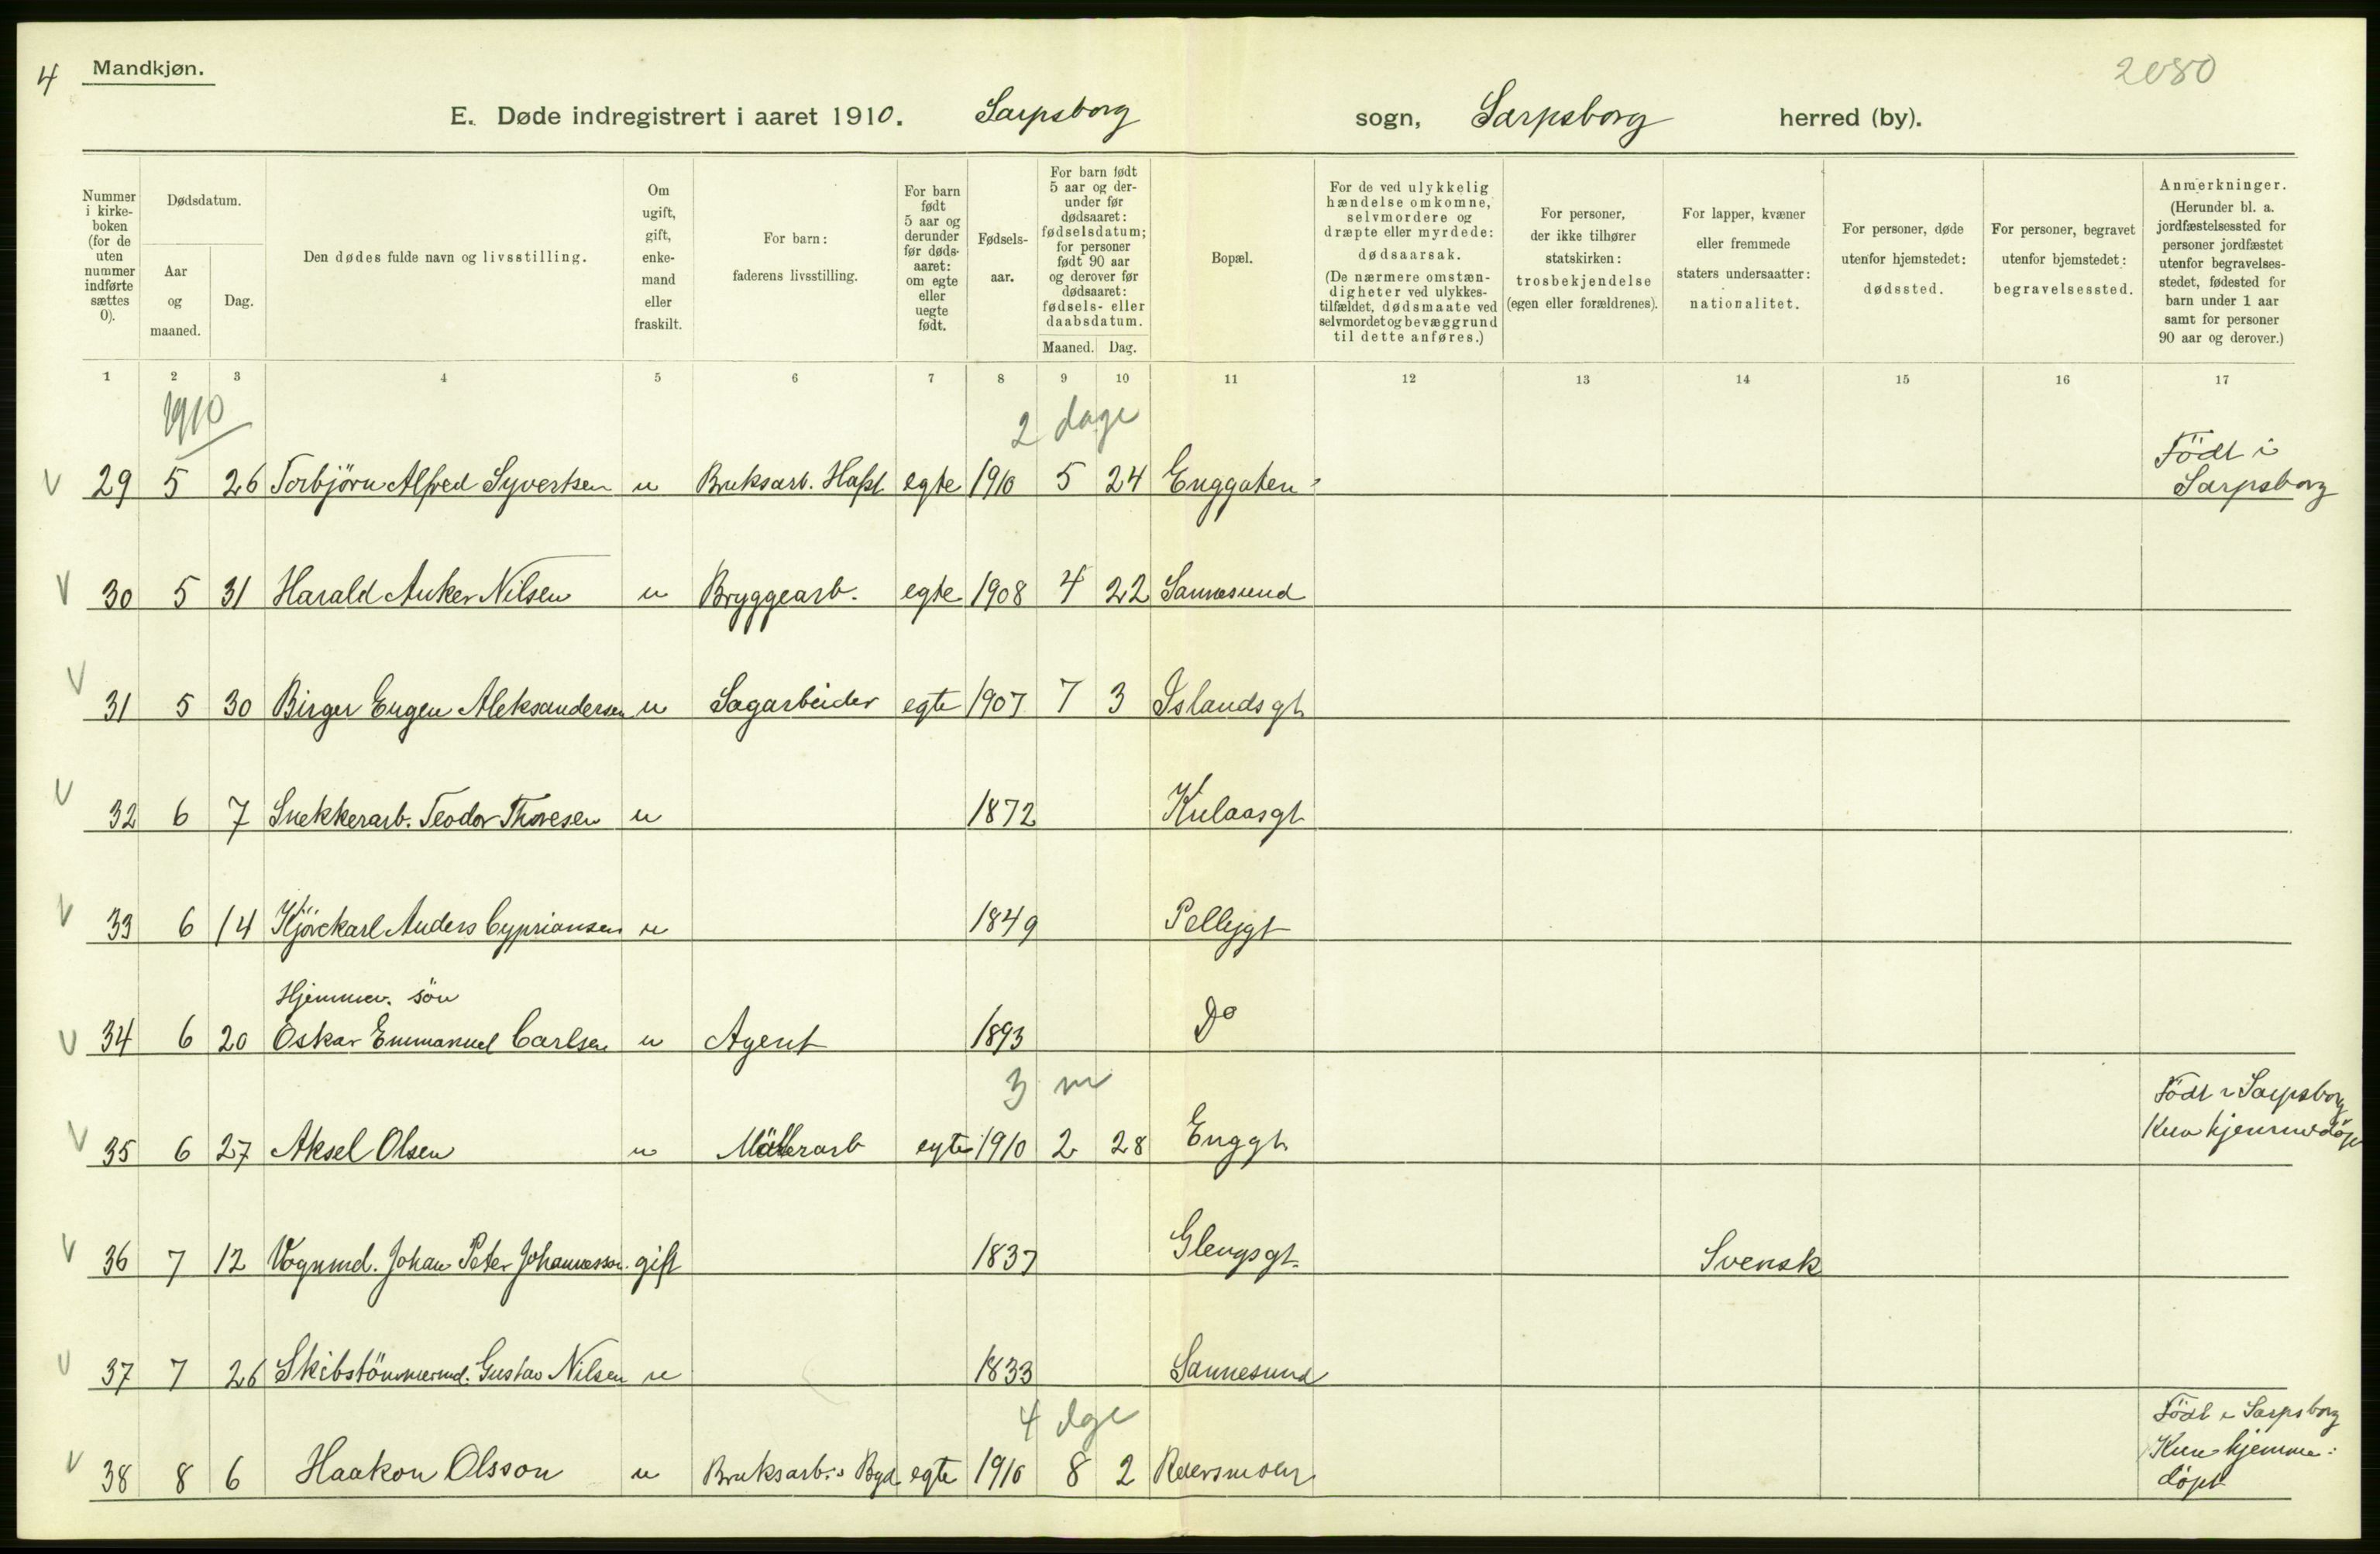 4 Mandkjøn. 2080
E. Døde indregistrert i aaret 1910. Sarpsborg sogn, Sarpsborg herred (by).
Nummer i kirkeboken (for de uten nummer indførte sættes 0).
Dødsdatum.
Aar og maaned.
Dag.
Den dødes fulde navn og livsstilling.
Om ugift, gift, enkemand eller fraskilt.
For barn: faderens livsstilling.
For barn født 5 aar og derunder før dødsaaret: om egte eller uegte født.
Fødselsaar.
For barn født 5 aar og derunder før dødsaaret: fødselsdatum; for personer født 90 aar og derover før dødsaaret: fødsels- eller daabsdatum.
Maaned. Dag.
Bopæl.
For de ved ulykkelig hændelse omkomne, selvmordere og dræpte eller myrdede: dødsaarsak. (De nærmere omstændigheter ved ulykkestilfældet, dødsmaate ved selvmordet og bevæggrund til dette anføres.)
For personer, der ikke tilhører statskirken: trosbekjendelse (egen eller forældrenes).
For lapper, kvæner eller fremmede staters undersaatter: nationalitet.
For personer, døde utenfor hjemstedet: dødssted.
For personer, begravet utenfor hjemstedet: begravelsessted.
Anmerkninger. (Herunder bl. a. jordfæstelsessted for personer jordfæstet utenfor begravelsesstedet, fødested for barn under 1 aar samt for personer 90 aar og derover.)
1 2 3 4 5 6 7 8 9 10 11 12 13 14 15 16 17
1910 2 dage
V 29 5 26 Torbjørn Alfred Syvertsen u Bruksarb. Hafsl egte 1910 5 24 Enggaten Födt i Sarpsborg
V 30 5 31 Harald Anker Nilsen u Bryggearb. egte 1908 4 22 Sannesund
V 31 5 30 Birger Eugen Aleksandersen u Sagarbeider egte 1907 7 3 Islandsgt
V 32 6 7 Snekkerarb. Teodor Thoresen u 1872 Kulaasgt
V 33 6 14 Kjörekarl Anders Cypriansen u 1849 Pellygt
Hjemmev. sön
V 34 6 20 Oskar Emmanuel Carlsen u Agent 1893 Do
3 m
V 35 6 27 Aksel Olsen u egte 1910 2 28 Enggt Födt i Sarpsborg Kun hjemmedöpt
V 36 7 12 Vognmd. Johan Peter Johannesson gift 1837 Glengsgt. Svensk
V 37 7 26 Skibstömmermd. Gustav Nilsen u 1833 Sannesund
4 dge
V 38 8 6 Haakon Olsson u Bruksarb. egte 1910 8 2 Födt i Sarpsborg Kun hjemmedöpt